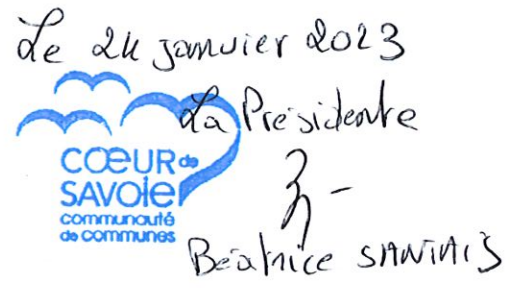 Le 24 janvier 2023
La Présidente
CŒUR de
SAVOIE
communauté
de communes
Béatrice SANTAIS